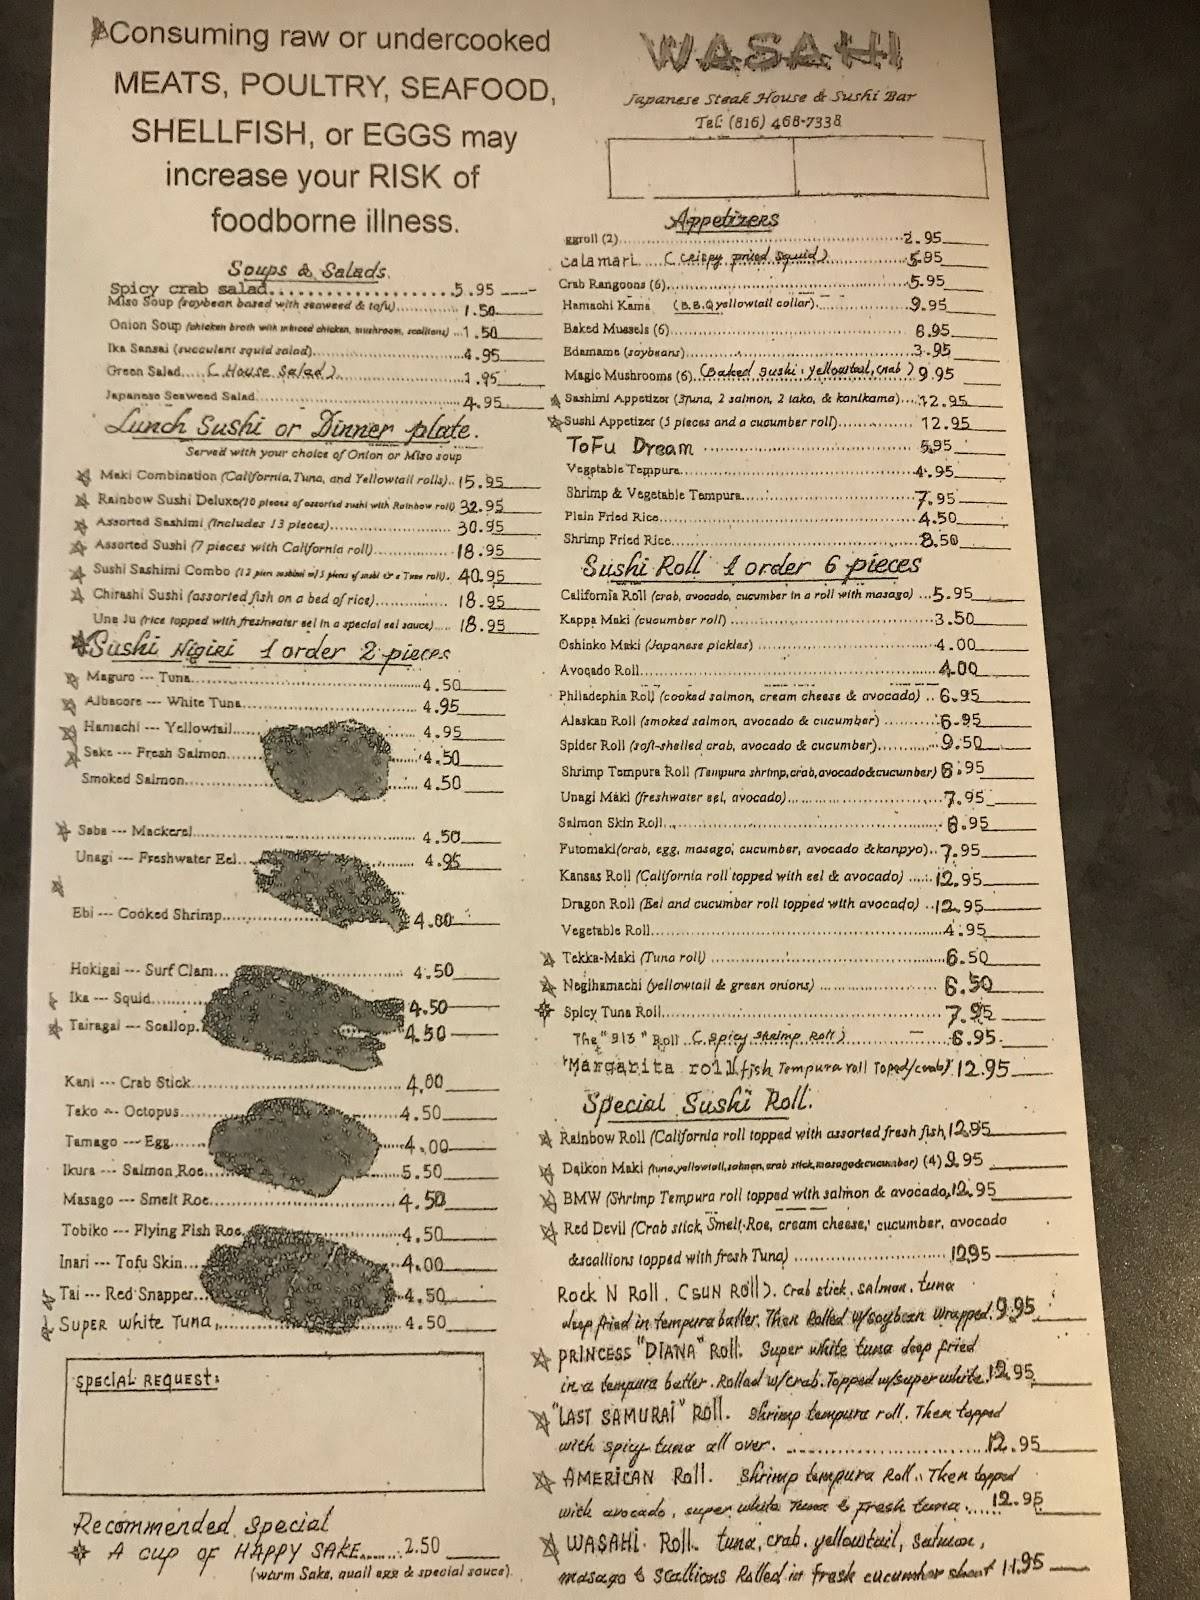 Consuming raw or undercooked
MEATS, POULTRY, SEAFOOD,
SHELLFISH, or EGGS may
increase your RISK of
foodborne illness.
Soups & Salads
Spicy crab salad....................5.95
Miso Soup (soybean based with seaweed & tofu)........1.50
Onion Soup (chicken broth with minced chicken, mushroom, scallions) ...1.50
Ika Sansai (succulent squid salad)........4.95
Green Salad.....(House Salad)........1.95
Japanese Seaweed Salad........4.95
Lunch Sushi or Dinner plate.
Served with your choice of Onion or Miso soup
Maki Combination (California, Tuna, and Yellowtail rolls)..15.95
Rainbow Sushi Deluxe(10 pieces of assorted sushi with Rainbow roll) 32.95
Assorted Sashimi (Includes 13 pieces)........30.95
Assorted Sushi (7 pieces with California roll)........18.95
Sushi Sashimi Combo (12 pices sashimi w/5 pieces of sushi & a Tuna roll). 40.95
Chirashi Sushi (assorted fish on a bed of rice)........18.95
Una Ju (rice topped with freshwater eel in a special eel sauce).....18.95
Sushi Nigiri 1 order 2 pieces
Maguro --- Tuna........4.50
Albacore --- White Tuna........4.95
Hamachi --- Yellowtail........4.95
Sake --- Fresh Salmon........4.50
Smoked Salmon........4.50
Saba --- Mackerel........4.50
Unagi --- Freshwater Eel........4.95
Ebi --- Cooked Shrimp........4.00
Hokigai --- Surf Clam........4.50
Ika --- Squid........4.50
Tairagai --- Scallop........4.50
Kani --- Crab Stick........4.00
Tako --- Octopus........4.50
Tamago --- Egg........4.00
Ikura --- Salmon Roe........5.50
Masago --- Smelt Roe........4.50
Tobiko --- Flying Fish Roe........4.50
Inari --- Tofu Skin........4.00
Tai --- Red Snapper........4.50
SUPER White Tuna........4.50
SPECIAL REQUEST:
Recommended Special
A CUP OF HAPPY SAKE........2.50
(warm Sake, quail egg & special sauce)
WASAHI
Japanese Steak House & Sushi Bar
Tel: (816) 468-7338
Appetizers
ggroll (2)........2.95
calamari....(Crispy Fried Squid)........5.95
Crab Rangoons (6)........5.95
Hamachi Kama (B.B.Q yellowtail collar)....9.95
Baked Mussels (6)........6.95
Edamame (soybeans)........3.95
Magic Mushrooms (6) (Baked sushi, yellowtail, crab) 9.95
Sashimi Appetizer (3tuna, 2 salmon, 2 tako, & kanikama)....12.95
Sushi Appetizer (5 pieces and a cucumber roll)........12.95
ToFu Dream........5.95
Vegetable Tempura........4.95
Shrimp & Vegetable Tempura........7.95
Plain Fried Rice........4.50
Shrimp Fried Rice........8.50
Sushi Roll 1 order 6 pieces
California Roll (crab, avocado, cucumber in a roll with masago) ...5.95
Kappa Maki (cucumber roll)........3.50
Oshinko Maki (Japanese pickles)........4.00
Avocado Roll........4.00
Philadephia Roll (cooked salmon, cream cheese & avocado) ..6.95
Alaskan Roll (smoked salmon, avocado & cucumber)........6.95
Spider Roll (soft-shelled crab, avocado & cucumber)........9.50
Shrimp Tempura Roll (Tempura shrimp,crab,avocado&cucumber) 8.95
Unagi Maki (freshwater eel, avocado)........7.95
Salmon Skin Roll........6.95
Futomaki(crab, egg, masago, cucumber, avocado &kanpyo)..7.95
Kansas Roll (California roll topped with eel & avocado)......12.95
Dragon Roll (Eel and cucumber roll topped with avocado)..12.95
Vegetable Roll........4.95
Tekka-Maki (Tuna roll)........6.50
Negihamachi (yellowtail & green onions)........6.50
Spicy Tuna Roll........7.95
The "913" Roll (Spicy shrimp Roll)........6.95
Margarita roll(fish Tempura roll Toped/crab) 12.95
Special Sushi Roll.
Rainbow Roll (California roll topped with assorted fresh fish,12.95
Daikon Maki (tuna,yellowtail,salmon,crab stick,masago&cucumber) (4) 9.95
BMW (Shrimp Tempura roll topped with salmon & avocado,12.95
Red Devil (Crab stick, Smelt-Roe, cream cheese, cucumber, avocado
&scallions topped with fresh Tuna)........12.95
Rock N Roll. (SUN ROLL). Crab stick, salmon, tuna
deep fried in tempura batter. Then Rolled w/soybean Wrapped. 9.95
PRINCESS "DIANA" Roll. Super white tuna deep fried
in a tempura batter. Rolled w/crab. Topped w/super white. 12.95
"LAST SAMURAI" Roll. shrimp tempura roll. Then topped
with spicy tuna all over........12.95
AMERICAN Roll. Shrimp tempura Roll. Then topped
with avocado, super white Tuna & Fresh tuna.....12.95
WASAHI Roll. tuna, crab, yellowtail, salmon,
masago & Scallions Rolled in fresh cucumber sheet 11.95